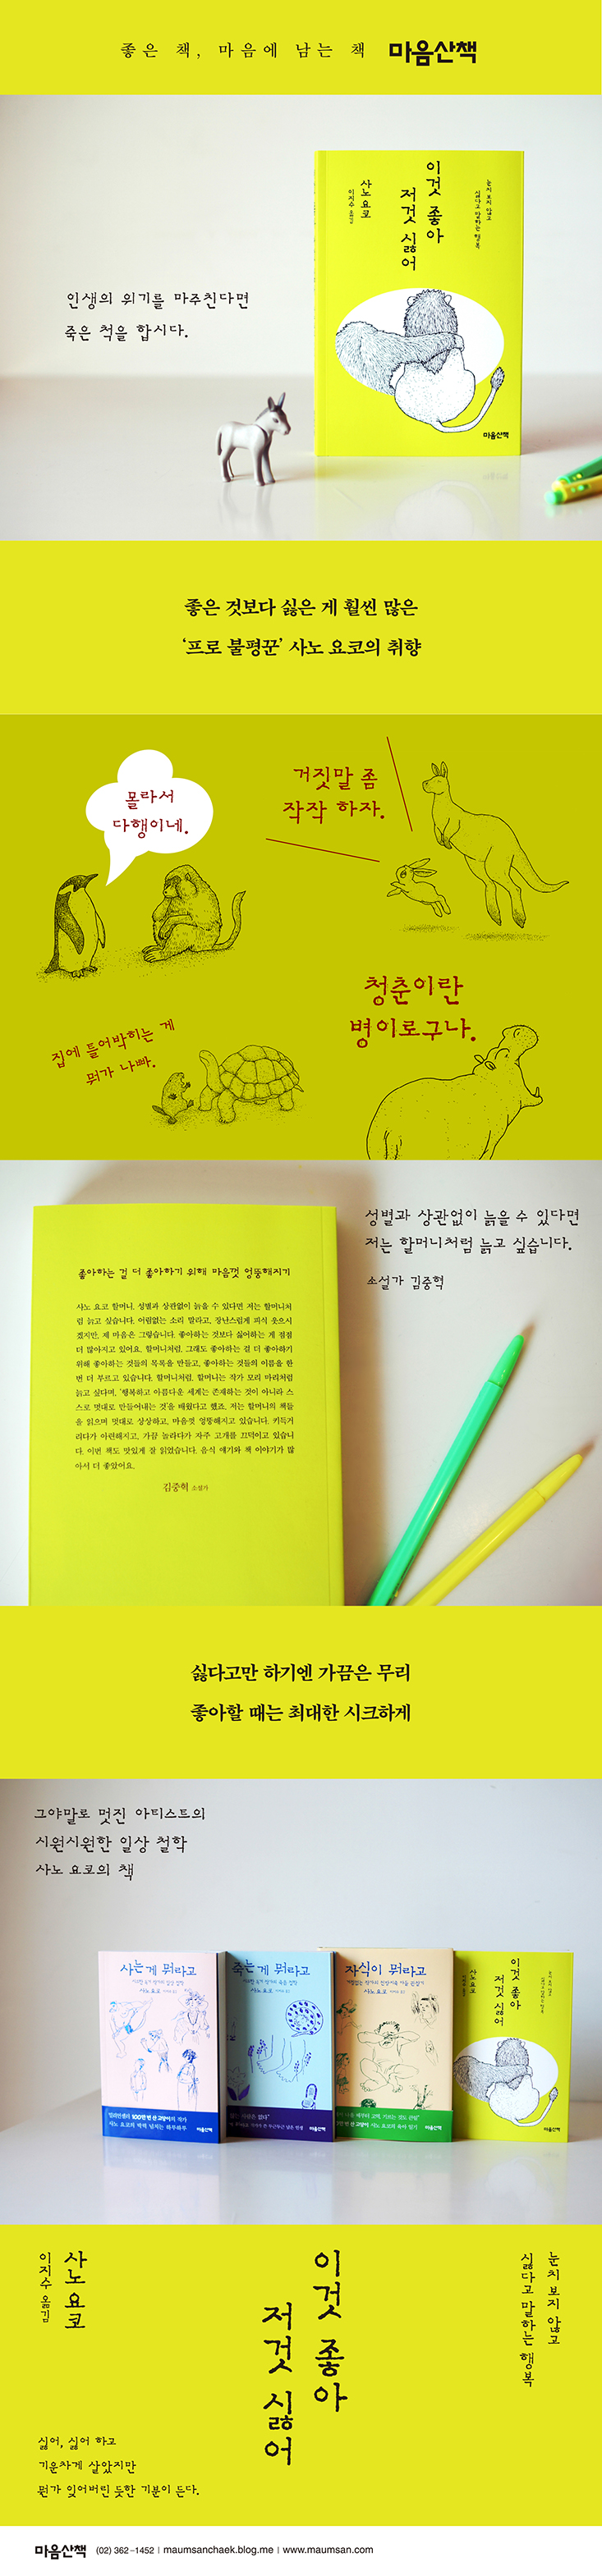 좋은 책, 마음에 남는 책 마음산책
이것 좋아
저것 싫어
눈치 보지 않고
싫다고 말하는 행복
사노 요코
이지수 옮김
마음산책
인생의 위기를 마주친다면
죽은 척을 합시다.
좋은 것보다 싫은 게 훨씬 많은
‘프로 불평꾼’ 사노 요코의 취향
몰라서
다행이네.
거짓말 좀
작작 하자.
집에 틀어박히는 게
뭐가 나빠.
청춘이란
병이로구나.
성별과 상관없이 늙을 수 있다면
저는 할머니처럼 늙고 싶습니다.
소설가 김중혁
좋아하는 걸 더 좋아하기 위해 마음껏 엉뚱해지기
사노 요코 할머니, 성별과 상관없이 늙을 수 있다면 저는 할머니처
럼 늙고 싶습니다. 어림없는 소리 말라고, 장난스럽게 피식 웃으시
겠지만, 제 마음은 그렇습니다. 좋아하는 것보다 싫어하는 게 점점
더 많아지고 있어요. 할머니처럼. 그래도 좋아하는 걸 더 좋아하기
위해 좋아하는 것들의 목록을 만들고, 좋아하는 것들의 이름을 한
번 더 부르고 있습니다. 할머니처럼. 할머니는 작가 모리 마리처럼
늙고 싶다며, ‘행복하고 아름다운 세계는 존재하는 것이 아니라 스
스로 멋대로 만들어내는 것’을 배웠다고 했죠. 저는 할머니의 책들
을 읽으며 멋대로 상상하고, 마음껏 엉뚱해지고 있습니다. 키득거
리다가 아련해지고, 가끔 놀라다가 자주 고개를 끄덕이고 있습니
다. 이번 책도 맛있게 잘 읽었습니다. 음식 얘기와 책 이야기가 많
아서 더 좋았어요.
김중혁 소설가
싫다고만 하기엔 가끔은 무리
좋아할 때는 최대한 시크하게
그야말로 멋진 아티스트의
시원시원한 일상 철학
사노 요코의 책
사는 게 뭐라고
사노 요코
죽는 게 뭐라고
사노 요코
자식이 뭐라고
사노 요코
이것 좋아
저것 싫어
마음산책
마음산책
마음산책
마음산책
이것 좋아
저것 싫어
눈치 보지 않고
싫다고 말하는 행복
사노 요코
이지수 옮김
싫어, 싫어 하고
기운차게 살았지만
뭔가 잊어버린 듯한 기분이 든다.
마음산책 (02) 362-1452 | maumsanchaek.blog.me | www.maumsan.com